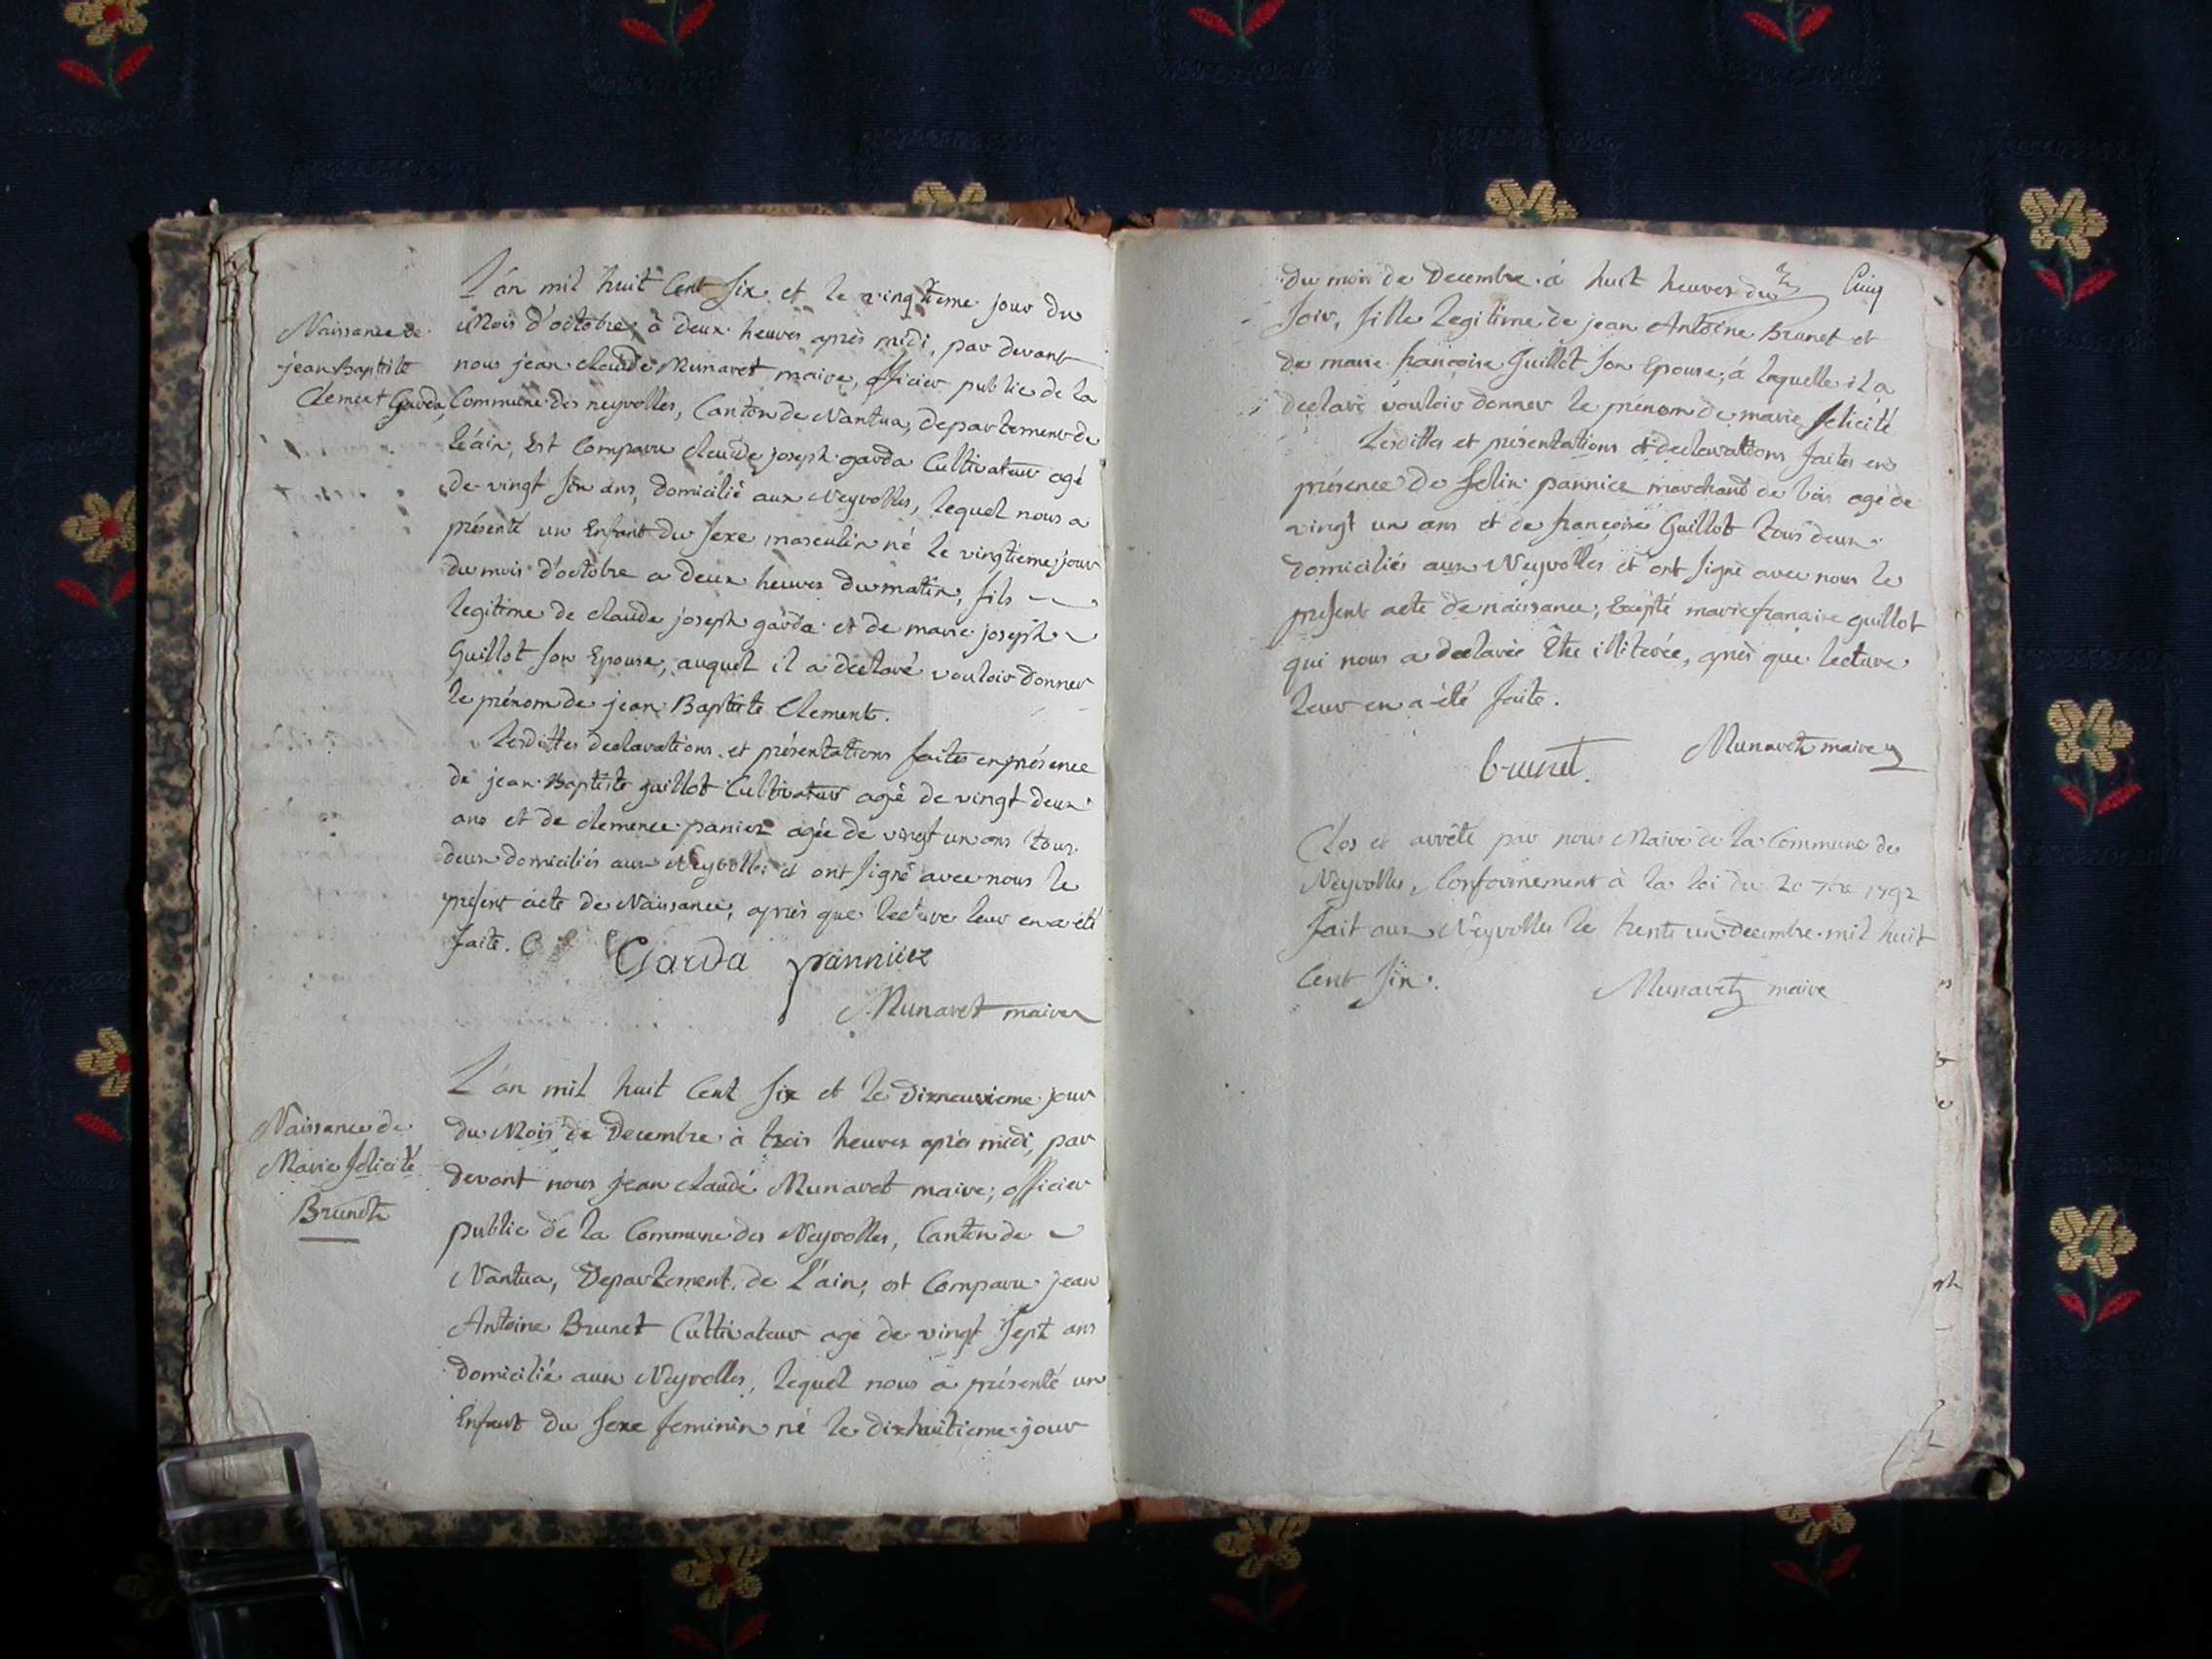 L'an mil huit Cent Six et le vingtieme jour du
Naissance de
jean Baptiste
Clement Garda,
Mois d'octobre à deux heures après midi, par devant
nous jean claude Munaret maire, officier public de la
Commune des neyrolles, Canton de Nantua, departement de
l'ain, Est Comparu claude joseph garda Cultivateur agé
de vingt six ans, domicilié aux Neyrolles, lequel nous a
présenté un Enfant du sexe masculin né le vingtieme jour
du mois d'octobre a deux heures du matin, fils
legitime de claude joseph garda et de marie joseph
Guillot son Epouse, auquel il a declaré vouloir donner
le prénom de jean Baptiste Clement.
Lesdittes declarations et présentations faites en présence
de jean Baptiste guillot Cultivateur agé de vingt deux
ans et de clemence panier agée de vingt un ans tous
deux domiciliés aux Neyrolles et ont signé avec nous le
present acte de Naissance, après que lecture leur en a été
faite.
Garda panniez
Munaret maire
L'an mil huit Cent six et le dixneuvieme jour
Naissance de
Marie felicité
Brunet
du Mois de Decembre à trois heures après midi, par
devant nous jean claude Munaret maire, officier
public de la Commune des Neyrolles, Canton de
Nantua, Departement de l'ain, est Comparu jean
Antoine Brunet Cultivateur agé de vingt sept ans
domicilié aux Neyrolles, lequel nous a présenté un
Enfant du sexe feminin né le dixhuitieme jour
Cinq
du mois de Decembre à huit heures du
soir, fille legitime de jean Antoine Brunet et
de marie françoise Guillot son Epouse, à laquelle il a
declaré vouloir donner le prénom de marie felicité
Lesdittes et présentations et declarations faites en
présence de felix pannice marchand de bois agé de
vingt un ans et de françoise Guillot tous deux
domiciliés aux Neyrolles et ont signé avec nous le
present acte de naissance, Excepté marie françoise guillot
qui nous a declarée Être illiterée, après que lecture
leur en a été faite.
brunet. Munaret maire
Clos et arrêté par nous Maire de la Commune des
Neyrolles, Conformement à la loi du 20 7bre 1792
fait aux Neyrolles le trente un decembre mil huit
Cent six.
Munaret maire